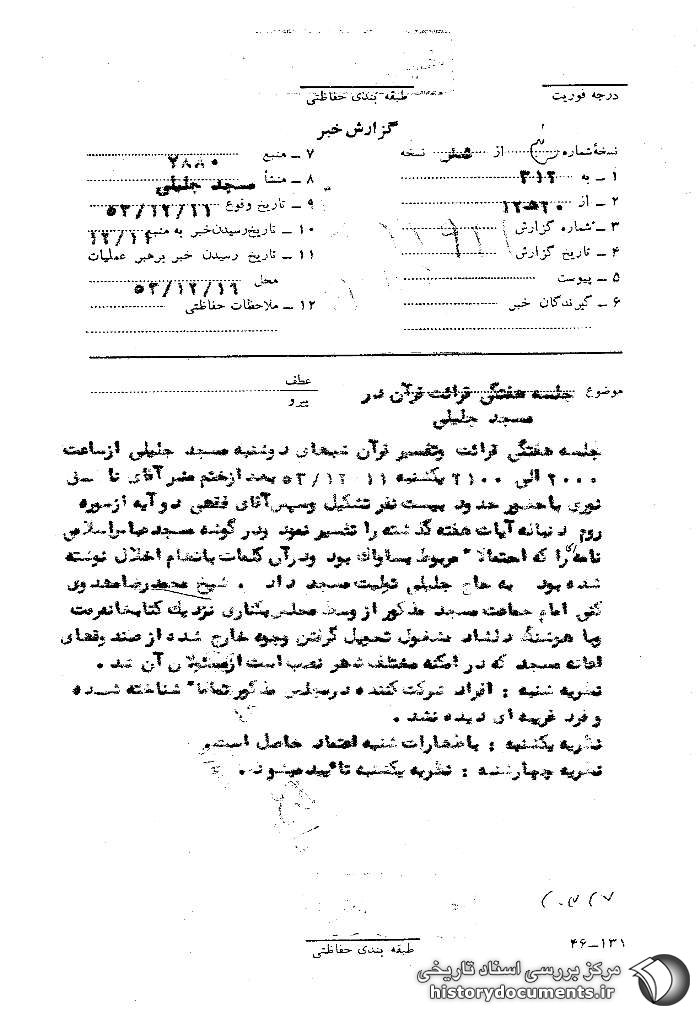 درجه فوریت
طبقه بندی حفاظتی
گزارش خبر
نسخهٔ شماره از شش نسخه
۷ ـ منبع ۷۸۸۰
۱ ـ به ۳۱۲
۸ ـ منشأ مسجد جلیلی
۲ ـ از ۲۰ه۱۲
۹ ـ تاریخ وقوع ۵۳/۱۲/۱۱
۳ ـ شماره گزارش
۱۰ ـ تاریخ رسیدن خبر به منبع ۱۲/۱۱
۴ ـ تاریخ گزارش
۱۱ ـ تاریخ رسیدن خبر برهبر عملیات
۵ ـ پیوست
محل ۵۳/۱۲/۱۶
۶ ـ گیرندگان خبر
۱۲ ـ ملاحظات حفاظتی
موضوع جلسه هفتگی قرائت قرآن در
مسجد جلیلی
عطف
پیرو
جلسه هفتگی قرائت وتفسیر قرآن شبهای دوشنبه مسجد جلیلی ازساعت
۲۰۰۰ الی ۲۱۰۰ یکشنبه ۱۱ /۵۳/۱۲ بعد ازختم منبر آقای
نوری باحضور حدود بیست نفر تشکیل وسپس آقای فقهی دو آیه ازسوره
روم دنباله آیات هفته گذشته را تفسیر نمود ودر گوشه مسجد
نامه‌ای را که احتمالا" مربوط بساواک بود ودرآن کلمات باتمام اخلال نوشته
شده بود به حاج جلیلی تولیت مسجد داد . شیخ محمدرضا مهدوی
کنی امام جماعت مسجد مذکور از وسط مجلس بکناری نزدیک کتابخانه رفت
وبا هوشنگ دلشاد مشغول تحویل گرفتن وجوه خارج شده از صندوقهای
اعانه مسجد که در امکنه مختلف شهر نصب است ازمسئولان آن شد .
نظریه شنبه : افراد شرکت کننده درمجلس مذکور تماما" شناخته شده
و فرد غریبه ای دیده نشد .
نظریه یکشنبه : باظهارات شنبه اعتماد حاصل است .
نظریه چهارشنبه : نظریه یکشنبه تائید میشود .
۴۶-۱۳۱
طبقه بندی حفاظتی
مرکز بررسی اسناد تاریخی
historydocuments.ir